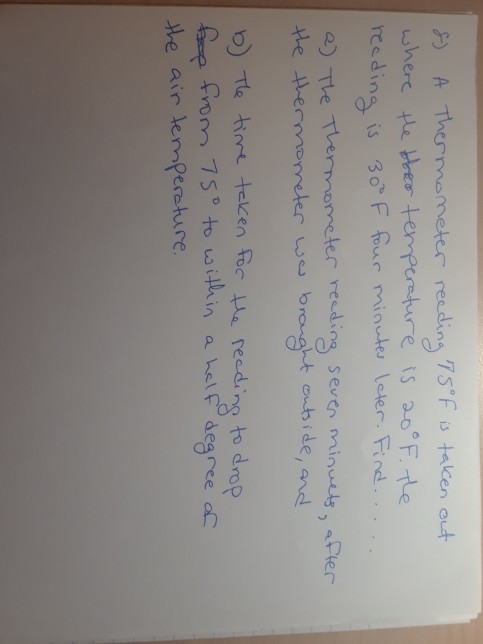 8) A Thermometer reading 75°F is taken out
where the temperature is 20°F. The
reading is 30°F four minutes later. Find.....
a) The Thermometer reading seven minuets, after
the thermometer was brought outside, and
b) The time taken for the reading to drop
from 75° to within a half degree of
the air temperature.